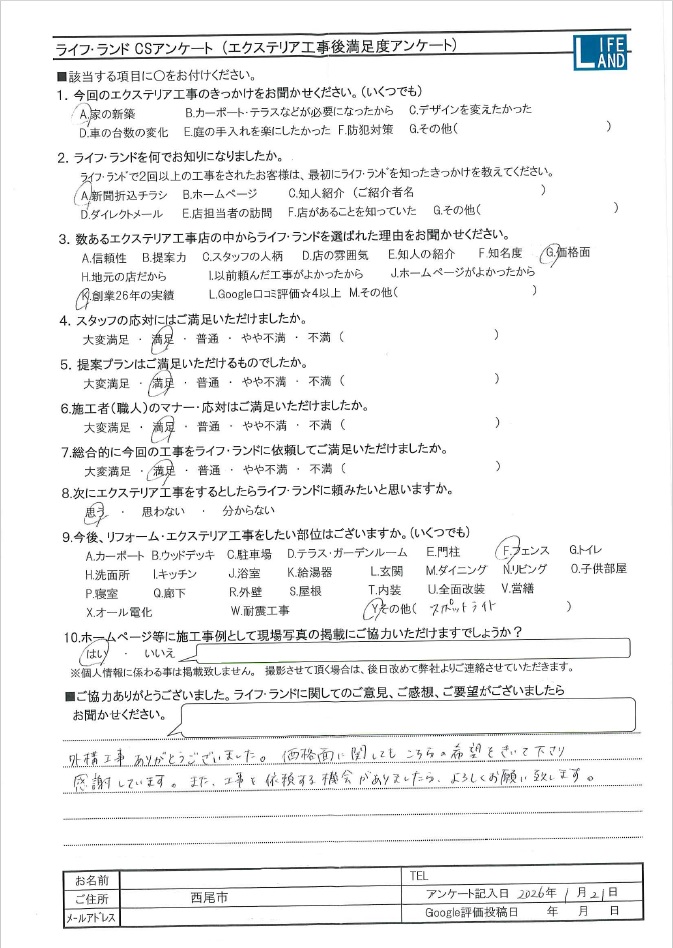 ライフ・ランド CSアンケート（エクステリア工事後満足度アンケート）
LIFE LAND
■該当する項目に〇をお付けください。
1. 今回のエクステリア工事のきっかけをお聞かせください。（いくつでも）
A.家の新築 B.カーポート・テラスなどが必要になったから C.デザインを変えたかった
D.車の台数の変化 E.庭の手入れを楽にしたかった F.防犯対策 G.その他( )
2. ライフ・ランドを何でお知りになりましたか。
ライフ・ランドで2回以上の工事をされたお客様は、最初にライフ・ランドを知ったきっかけを教えてください。
A.新聞折込チラシ B.ホームページ C.知人紹介（ご紹介者名 ）
D.ダイレクトメール E.店担当者の訪問 F.店があることを知っていた G.その他( )
3. 数あるエクステリア工事店の中からライフ・ランドを選ばれた理由をお聞かせください。
A.信頼性 B.提案力 C.スタッフの人柄 D.店の雰囲気 E.知人の紹介 F.知名度 G.価格面
H.地元の店だから I.以前頼んだ工事がよかったから J.ホームページがよかったから
K.創業26年の実績 L.Google口コミ評価☆4以上 M.その他( )
4. スタッフの応対にはご満足いただけましたか。
大変満足 ・ 満足 ・ 普通 ・ やや不満 ・ 不満 ( )
5. 提案プランはご満足いただけるものでしたか。
大変満足 ・ 満足 ・ 普通 ・ やや不満 ・ 不満 ( )
6.施工者（職人）のマナー・応対はご満足いただけましたか。
大変満足 ・ 満足 ・ 普通 ・ やや不満 ・ 不満 ( )
7.総合的に今回の工事をライフ・ランドに依頼してご満足いただけましたか。
大変満足 ・ 満足 ・ 普通 ・ やや不満 ・ 不満 ( )
8.次にエクステリア工事をするとしたらライフ・ランドに頼みたいと思いますか。
思う ・ 思わない ・ 分からない
9.今後、リフォーム・エクステリア工事をしたい部位はございますか。（いくつでも）
A.カーポート B.ウッドデッキ C.駐車場 D.テラス・ガーデンルーム E.門柱 F.フェンス G.トイレ
H.洗面所 I.キッチン J.浴室 K.給湯器 L.玄関 M.ダイニング N.リビング O.子供部屋
P.寝室 Q.廊下 R.外壁 S.屋根 T.内装 U.全面改装 V.営繕
X.オール電化 W.耐震工事 Y.その他( スポットライト )
10.ホームページ等に施工事例として現場写真の掲載にご協力いただけますでしょうか？
はい ・ いいえ
※個人情報に係わる事は掲載致しません。 撮影させて頂く場合は、後日改めて弊社よりご連絡させていただきます。
■ご協力ありがとうございました。ライフ・ランドに関してのご意見、ご感想、ご要望がございましたら
お聞かせください。
外構工事ありがとうございました。価格面に関しても こちらの希望をきいて下さり
感謝しています。また、工事を依頼する機会がありましたら、よろしくお願い致します。
お名前 TEL
ご住所 西尾市 アンケート記入日 2026年 1月 21日
メールアドレス Google評価投稿日 年 月 日